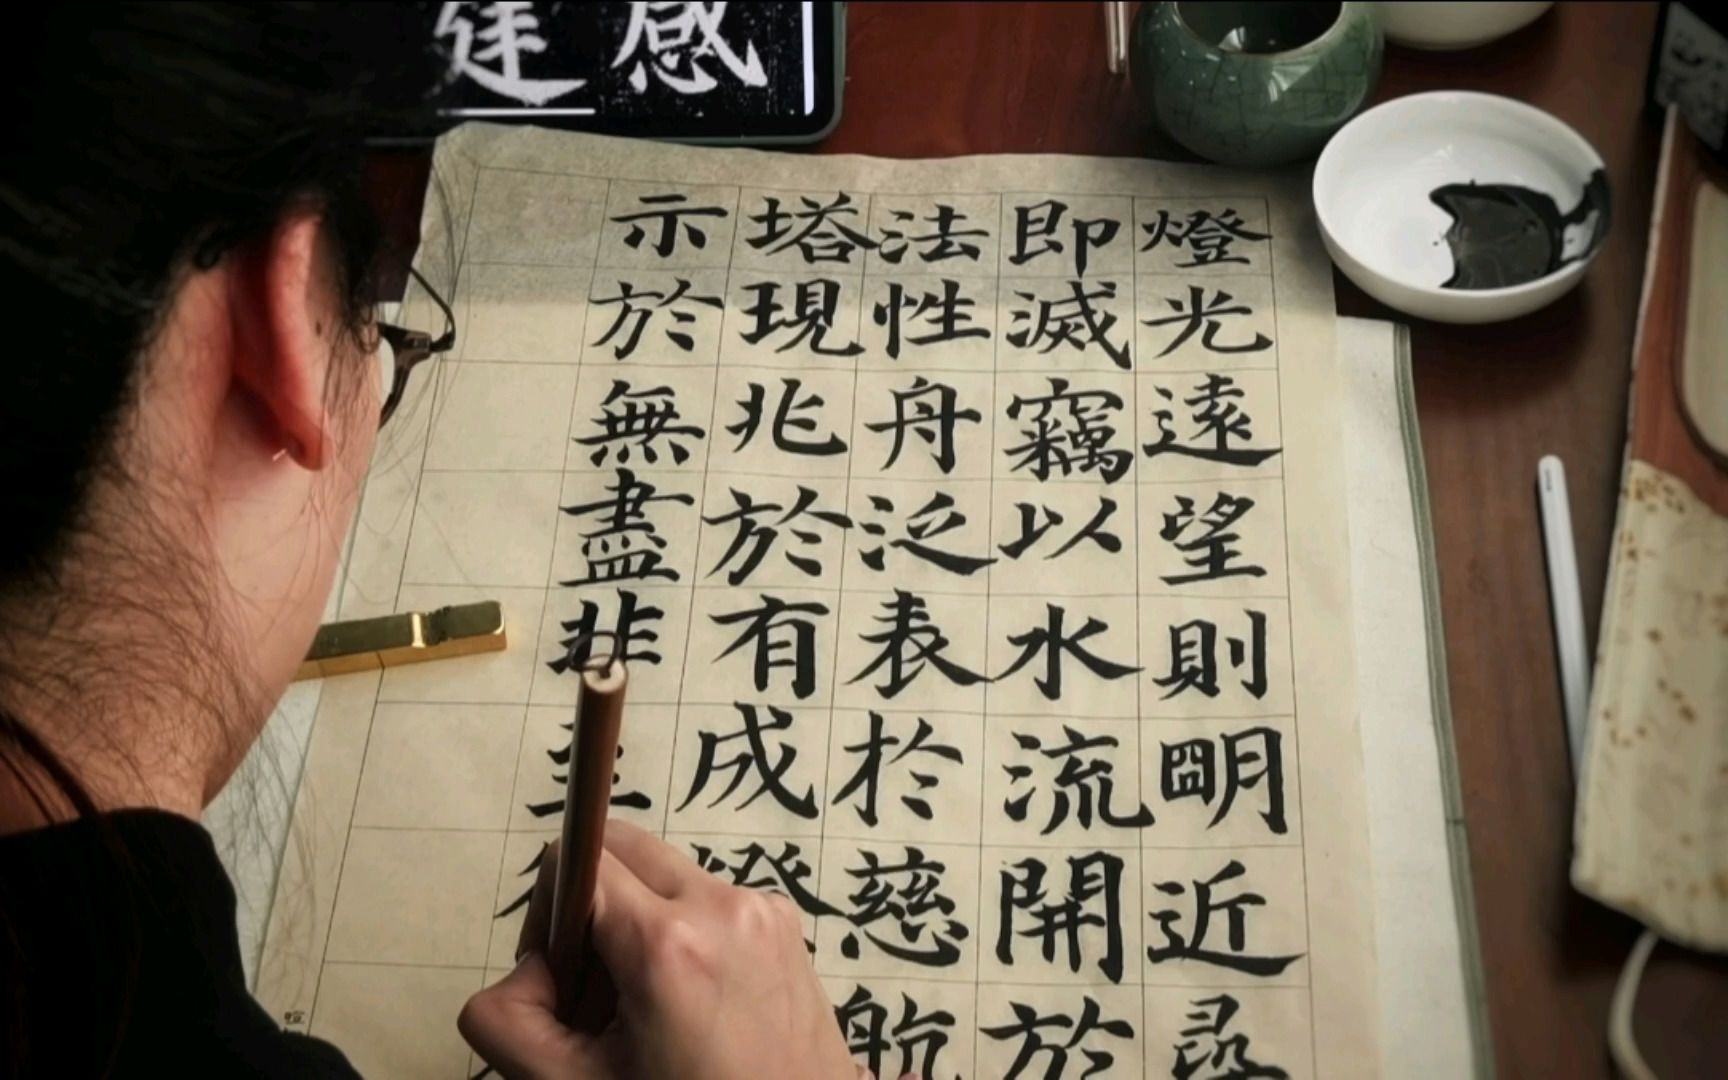 燈光遠望則明近尋
即滅竊以水流開於
法性舟泛表於慈航
塔現兆於有成燈
示於無盡非
感